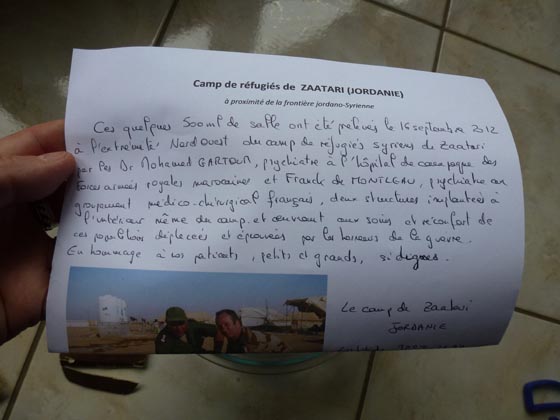 Camp de réfugiés de ZAATARI (JORDANIE)
à proximité de la frontière jordano-Syrienne
Ces quelques 500 ml de sable ont été prélevés le 16 septembre 2012
à l'extrémité Nord Ouest du camp de réfugiés syriens de Zaatari
par les Dr Mohamed GARTOUM, psychiatre à l'hôpital de campagne des
Forces armées royales marocaines et Franck de MONTLEAU, psychiatre au
groupement médico-chirurgical français, deux structures implantées à
l'intérieur même du camp et œuvrant aux soins et réconfort de
ces populations déplacées et éprouvées par les horreurs de la guerre.
En hommage à nos patients, petits et grands, si dignes.
Le camp de Zaatari
JORDANIE